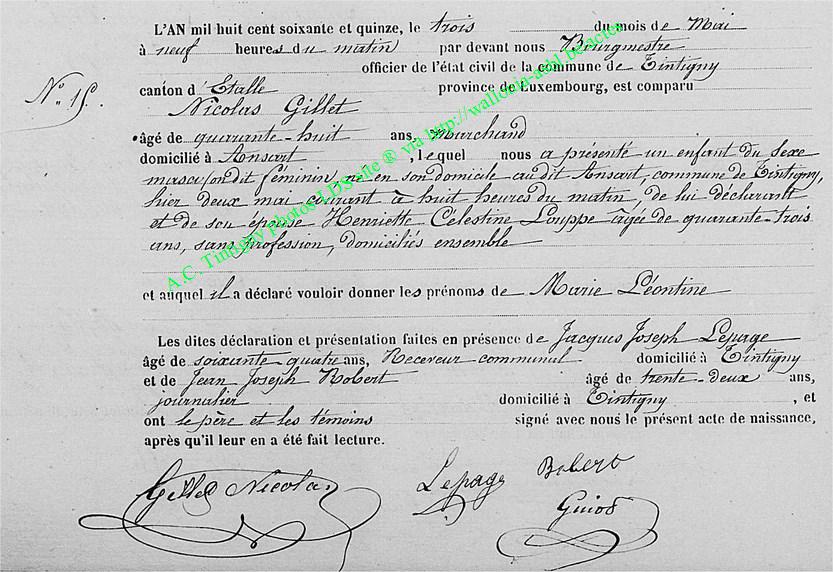 L'AN mil huit cent soixante et quinze, le trois du mois de Mai
à neuf heures du matin par devant nous Bourgmestre
officier de l'état civil de la commune de Tintigny
No. 15.
canton d'Etalle province de Luxembourg, est comparu
Nicolas Gillet
âgé de quarante-huit ans, Marchand
domicilié à Ansart, lequel nous a présenté un enfant du sexe
féminin, né en son domicile au dit Ansart, commune de Tintigny,
hier deux mai courant à huit heures du matin, de lui déclarant
et de son épouse Henriette Célestine Louppe âgée de quarante-trois
ans, sans profession, domiciliés ensemble
et auquel il a déclaré vouloir donner les prénoms de Marie Léontine
Les dites déclaration et présentation faites en présence de Jacques Joseph Lepage
âgé de soixante quatre ans, Receveur communal domicilié à Tintigny
et de Jean Joseph Robert âgé de trente-deux ans,
journalier domicilié à Tintigny, et
ont le père et les témoins signé avec nous le présent acte de naissance,
après qu'il leur en a été fait lecture.
Gillet Nicolas Lepage Robert
Guiot
A.C. Tintigny photos LDS site ® via http://wallonia-asbl.be/actes